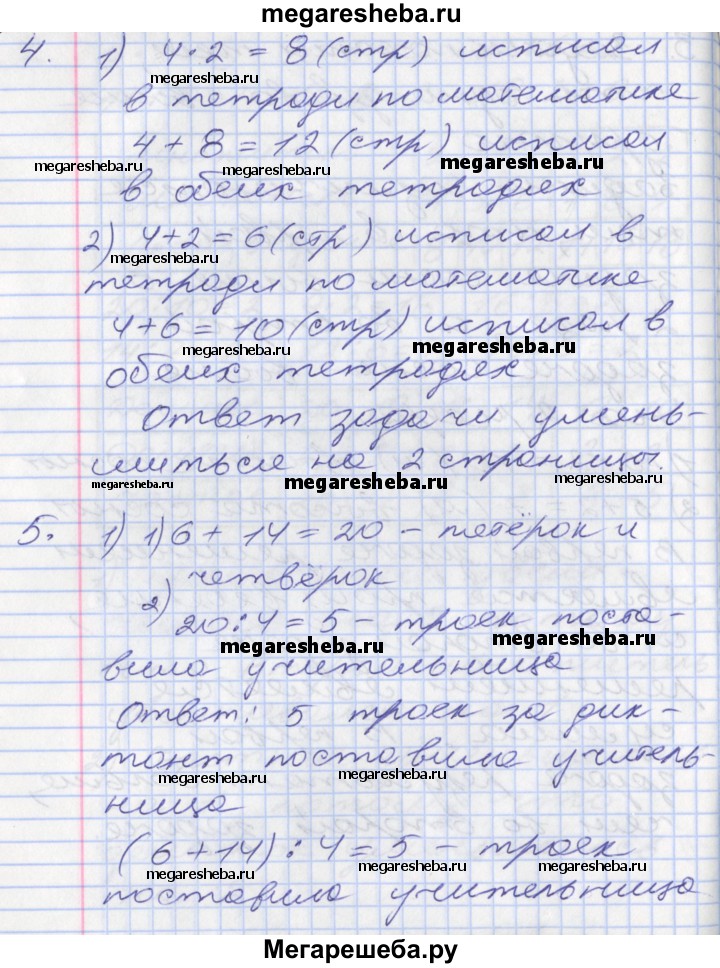 megaresheba.ru
4. 1) 4·2 = 8 (стр) исписал
megaresheba.ru
в тетради по математике
4 + 8 = 12 (стр) исписал
megaresheba.ru megaresheba.ru megaresheba.ru
в обеих тетрадях
2) 4+2 = 6 (стр) исписал в
megaresheba.ru
тетради по математике
4+6 = 10 (стр) исписал в
megaresheba.ru megaresheba.ru
обеих тетрадях
Ответ задачи умень-
шиться на 2 страницы.
megaresheba.ru megaresheba.ru megaresheba.ru
5. 1) 1) 6 + 14 = 20 – пятёрок и
четвёрок
2) 20:4 = 5 – троек поста-
megaresheba.ru megaresheba.ru
вила учительница
Ответ: 5 троек за дик-
тант поставила учитель-
megaresheba.ru megaresheba.ru megaresheba.ru
ница
(6+14):4 = 5 – троек
megaresheba.ru megaresheba.ru megaresheba.ru
поставила учительница
Мегарешеба.ру